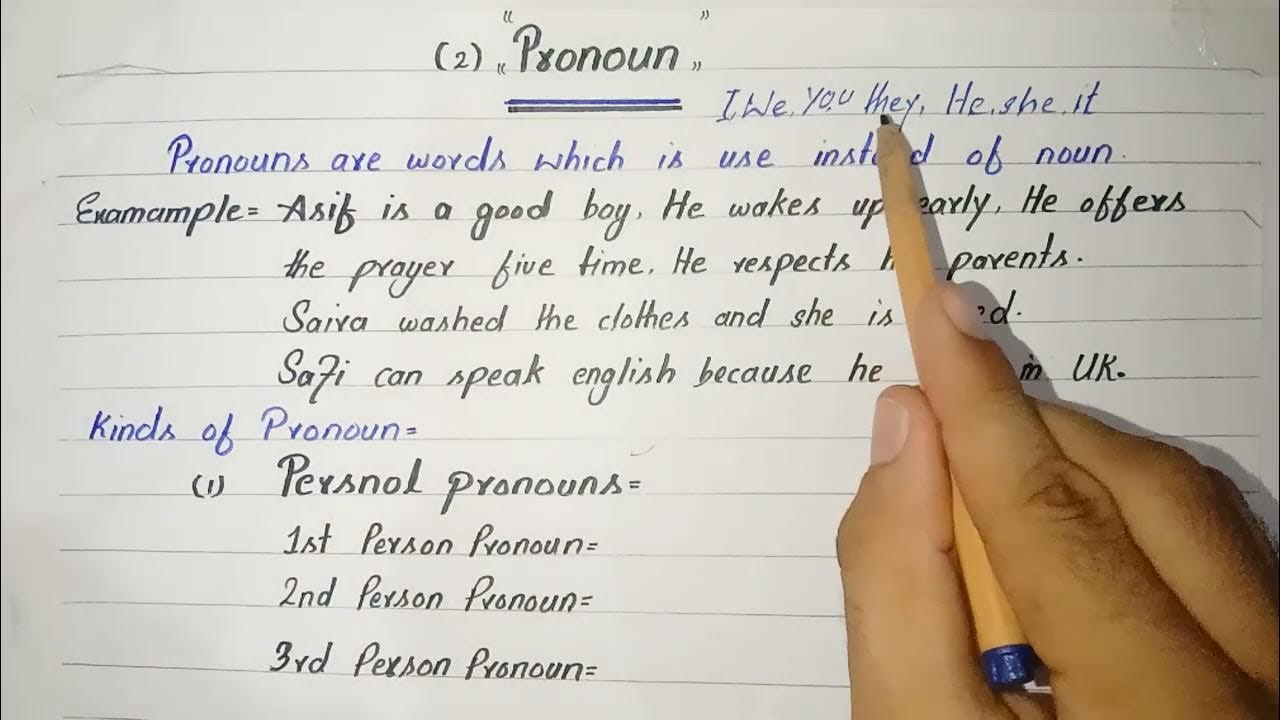 (2) "Pronoun"
I, We, YOU they, He, she, it
Pronouns are words which is use of noun.
Examample= Asif is a good boy, He wakes up early, He offers
the prayer five time, He respects parents.
Saira washed the clothes and she is
Safi can speak english because he in UK.
Kinds of Pronoun=
(1) Persnol pronouns=
1st Person Pronoun=
2nd Person Pronoun=
3rd Person Pronoun=